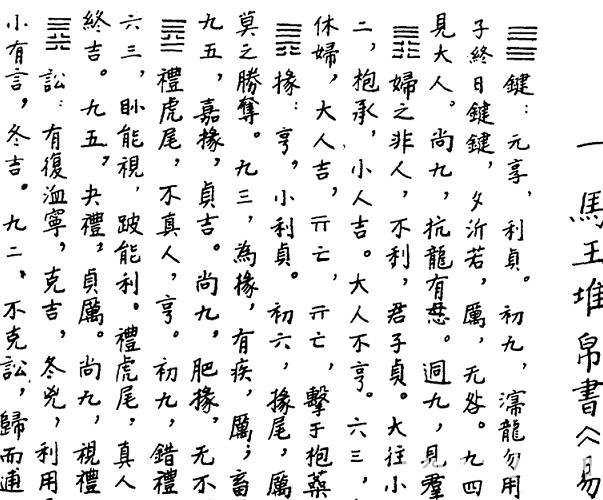 一 馬王堆帛書《易
䷀鍵：元享，利貞。初九，濡龍勿用
子終日鍵鍵，夕沂若，厲，无咎。九四
見大人。尚九，抗龍有悬。迵九，見羣
䷋婦之非人，不利，君子貞。大往小
二，抱承，小人吉。大人不亨。六三，
休婦，大人吉，亓亡，亓亡，擊于抱葉
䷠掾：亨，小利貞。初六，掾尾，厲
莫之勝奪。九三，為掾，有疾，厲；畜
九五，嘉掾，貞吉。尚九，肥掾，无不
䷉禮虎尾，不真人，亨。初九，錯禮
六三，眇能視，跛能利。禮虎尾，真人
終吉。九五，夬禮，貞厲。尚九，視禮
䷅訟：有復洫寧，克吉，冬兇，利用
小有言，冬吉。九二，不克訟，歸而逋